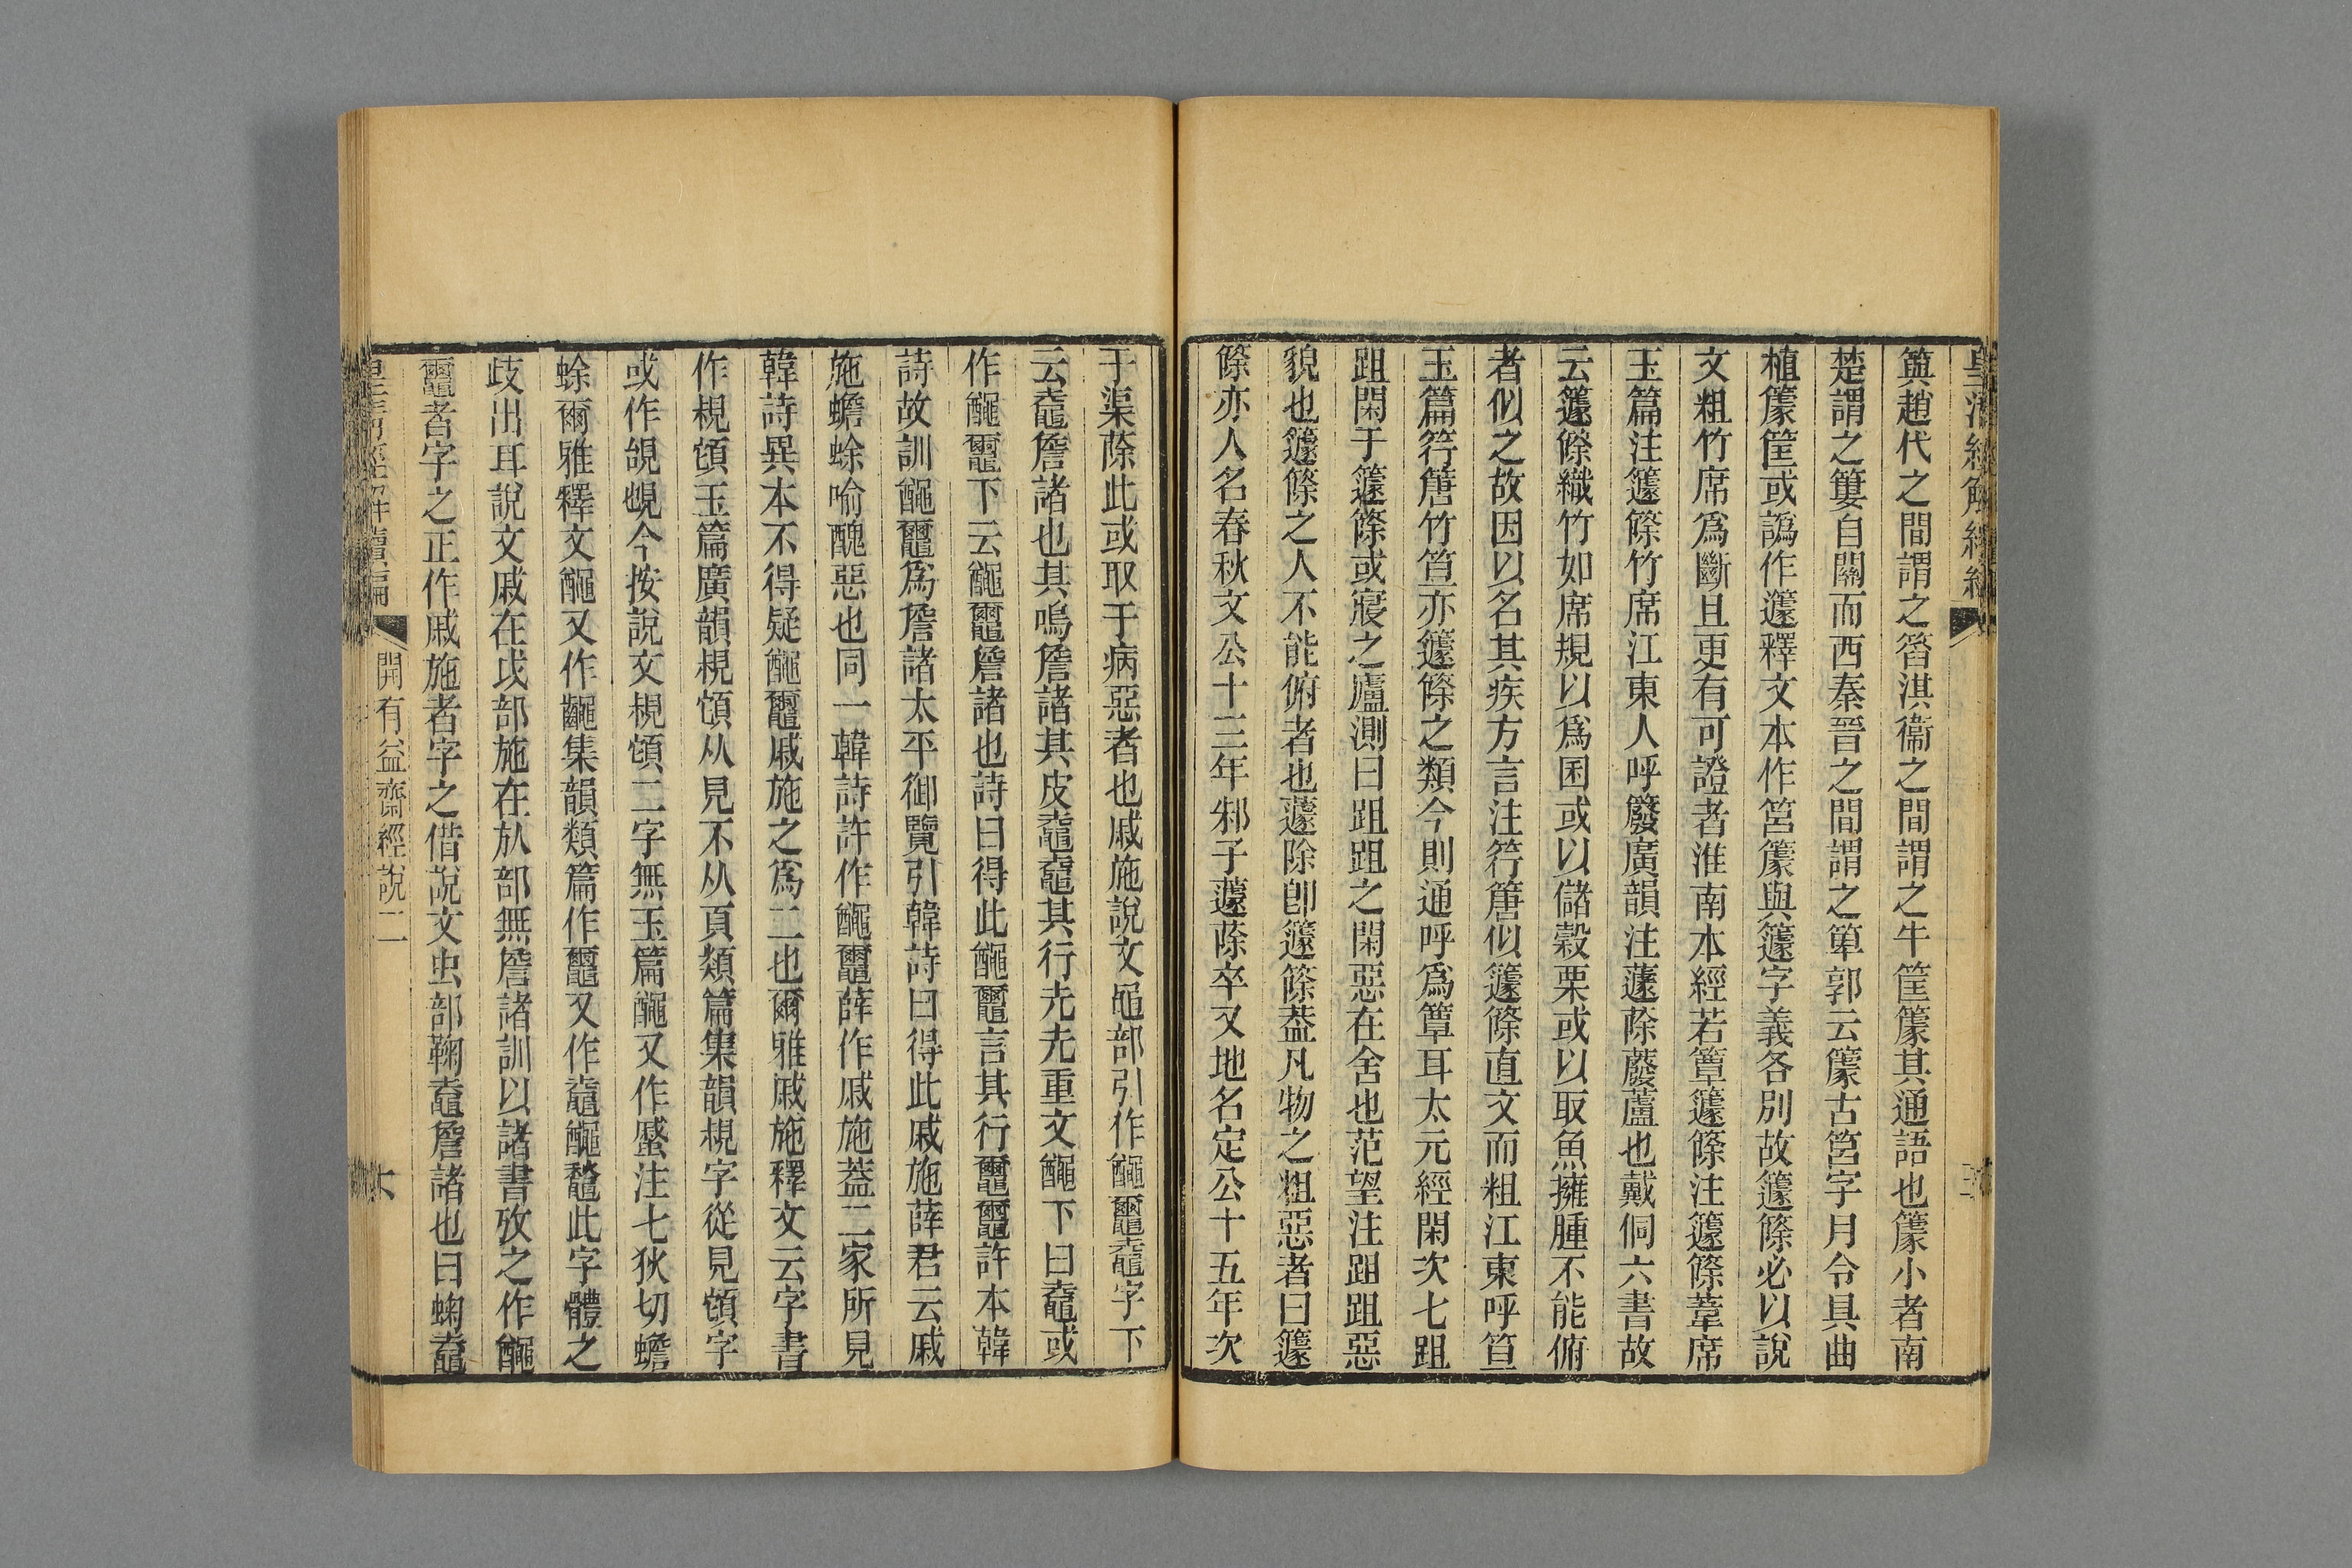 皇清經解續編
籅趙代之間謂之䈰淇衞之間謂之牛筐籧其通語也籧小者南
楚謂之簍自關而西秦晉之間謂之箄郭云籧古筥字月令具曲
植籧筐或譌作籧釋文本作筥籧與籧字義各別故籧篨必以說
文粗竹席爲斷且更有可證者淮南本經若簟籧篨注籧篨葦席
玉篇注籧篨竹席江東人呼𥴊廣韻注蘧蒢𧀾蘆也戴侗六書故
云籧篨織竹如席規以爲囷或以儲穀栗或以取魚擁腫不能俯
者似之故因以名其疾方言注筕篖似籧篨直文而粗江東呼笪
玉篇筕篖竹笪亦籧篨之類今則通呼爲簟耳太元經閑次七跙
跙閑于籧篨或寢之廬測曰跙跙之閑惡在舍也范望注跙跙惡
貌也籧篨之人不能俯者也蘧除卽籧篨葢凡物之粗惡者曰籧
篨亦人名春秋文公十三年邾子蘧蒢卒又地名定公十五年次
于渠蒢此或取于病惡者也戚施說文黽部引作𪓰𪓿𪓐字下
云𪓐詹諸也其鳴詹諸其皮𪓐𪓐其行𡴆𡴆重文𪓰下曰𪓐或
作𪓰𪓿下云𪓰𪓿詹諸也詩曰得此𪓰𪓿言其行𪓿𪓿許本韓
詩故訓𪓰𪓿爲詹諸太平御覽引韓詩曰得此戚施薛君云戚
施蟾蜍喻醜惡也同一韓詩許作𪓰𪓿薛作戚施葢二家所見
韓詩異本不得疑𪓰𪓿戚施之爲二也爾雅戚施釋文云字書
作規䫌玉篇廣韻規䫌从見不从頁類篇集韻規字從見䫌字
或作䚈䙾今按說文規䫌二字無玉篇𪓰又作𧐶注七狄切蟾
蜍爾雅釋文𪓰又作𪓰集韻類篇作𪓿又作𪓐𪓰𪓹此字體之
歧出耳說文戚在戉部施在㫃部無詹諸訓以諸書攷之作𪓰
𪓿者字之正作戚施者字之借說文虫部鞠𪓐詹諸也曰蜠𪓐
皇清經解續編
開有益齋經說二
六